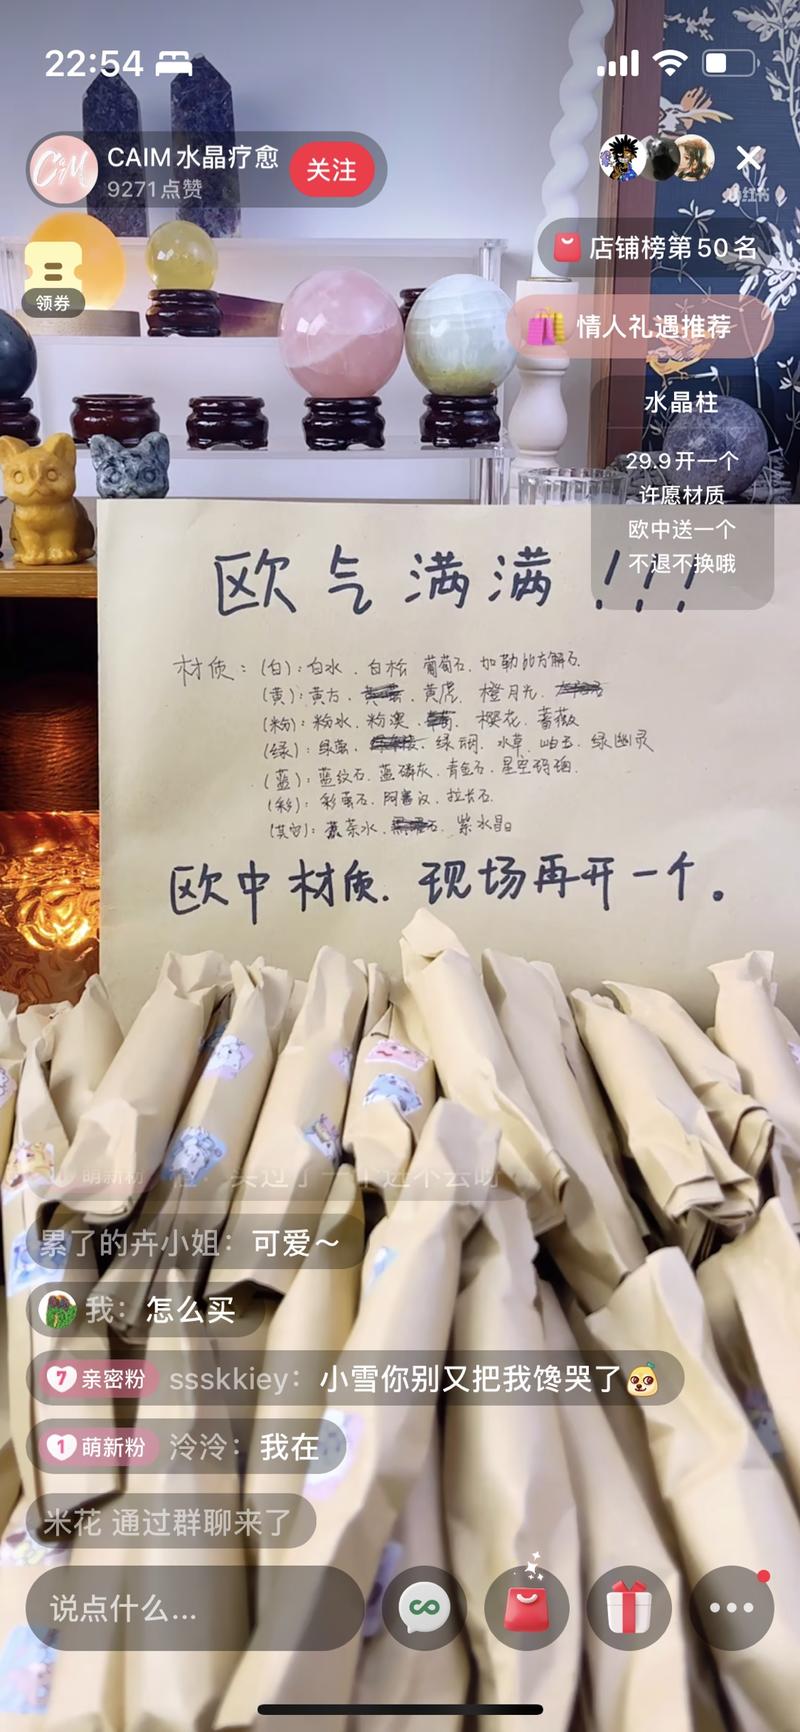 22:54
CAIM水晶疗愈
9271点赞
关注
小红书
领券
店铺榜第50名
情人礼遇推荐
水晶柱
29.9开一个
许愿材质
欧中送一个
不退不换哦
欧气满满!!!
材质：(白)：白水、白松 葡萄石、加勒比方解石.
(黄)：黄方、黄虎、橙月光、
(粉)：粉水、粉澳、樱花、蔷薇
(绿)：绿萤、绿铜、水草、岫玉、绿幽灵
(蓝)：蓝纹石、蓝磷灰、青金石、星空玛瑙.
(彩)：彩萤石、阿塞议、拉长石.
(其它)：茶水、紫水晶
欧中材质、现场再开一个。
萌新粉 买过了一个进不去呀
累了的卉小姐：可爱～
我：怎么买
7 亲密粉 ssskkiey：小雪你别又把我馋哭了
1 萌新粉 泠泠：我在
米花 通过群聊来了
说点什么...